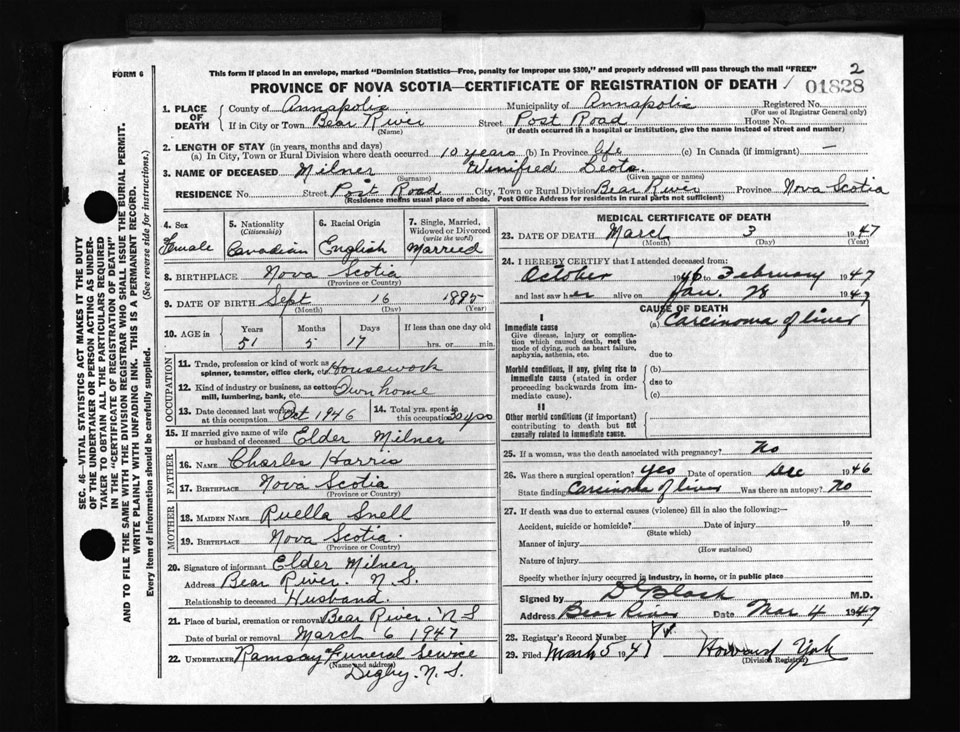 2
FORM 6
This form if placed in an envelope, marked "Dominion Statistics—Free, penalty for improper use $300," and properly addressed will pass through the mail "FREE"
PROVINCE OF NOVA SCOTIA—CERTIFICATE OF REGISTRATION OF DEATH 01828
1. PLACE OF DEATH County of Annapolis Municipality of Annapolis Registered No.
(For use of Registrar General only)
If in City or Town Bear River Street Post Road House No.
(Name) (If death occurred in a hospital or institution, give the name instead of street and number)
2. LENGTH OF STAY (in years, months and days)
(a) In City, Town or Rural Division where death occurred 10 years (b) In Province life (c) In Canada (if immigrant) —
3. NAME OF DECEASED Milner Winifred Leota
(Surname) (Given name or names)
RESIDENCE No. Street Post Road City, Town or Rural Division Bear River Province Nova Scotia
(Residence means usual place of abode. Post Office Address for residents in rural parts not sufficient)
4. Sex 5. Nationality (Citizenship) 6. Racial Origin 7. Single, Married, Widowed or Divorced (write the word)
Female Canadian English Married
8. BIRTHPLACE Nova Scotia
(Province or Country)
9. DATE OF BIRTH Sept 16 1895
(Month) (Day) (Year)
10. AGE in Years Months Days If less than one day old
51 5 17 hrs. or min.
OCCUPATION
11. Trade, profession or kind of work as spinner, teamster, office clerk, etc. Housework
12. Kind of industry or business, as cotton mill, lumbering, bank, etc. Own home
13. Date deceased last worked at this occupation Oct 1946 14. Total yrs. spent in this occupation 30 yrs
15. If married give name of wife or husband of deceased Elder Milner
FATHER
16. NAME Charles Harris
17. BIRTHPLACE Nova Scotia
(Province or Country)
MOTHER
18. MAIDEN NAME Ruella Snell
19. BIRTHPLACE Nova Scotia.
(Province or Country)
20. Signature of informant Elder Milner
Address Bear River. N.S.
Relationship to deceased Husband.
21. Place of burial, cremation or removal Bear River. N S
Date of burial or removal March 6 1947
22. UNDERTAKER Ramsay Funeral Service
(Name and address)
Digby. N. S.
MEDICAL CERTIFICATE OF DEATH
23. DATE OF DEATH March 3 1947
(Month) (Day) (Year)
24. I HEREBY CERTIFY that I attended deceased from:
October 1946 to February 1947
and last saw her alive on Jan. 28 1947
CAUSE OF DEATH
I
Immediate cause (a) Carcinoma of liver
Give disease, injury or complication which caused death, not the mode of dying, such as heart failure, asphyxia, asthenia, etc.
due to
Morbid conditions, if any, giving rise to immediate cause (stated in order proceeding backwards from immediate cause).
(b)
due to
(c)
II
Other morbid conditions (if important) contributing to death but not causally related to immediate cause.
25. If a woman, was the death associated with pregnancy? No
26. Was there a surgical operation? Yes Date of operation Dec 1946
State finding Carcinoma of liver Was there an autopsy? No
27. If death was due to external causes (violence) fill in also the following:—
Accident, suicide or homicide? Date of injury 19
(State which)
Manner of injury
(How sustained)
Nature of injury
Specify whether injury occurred in industry, in home, or in public place
Signed by M.D.
Address Bear River Date Mar 4 1947
28. Registrar's Record Number
29. Filed March 5 1947 Howard York
(Division Registrar)
SEC. 46—VITAL STATISTICS ACT MAKES IT THE DUTY
OF THE UNDERTAKER OR PERSON ACTING AS UNDER-
TAKER TO OBTAIN ALL THE PARTICULARS REQUIRED
IN THE "CERTIFICATE OF REGISTRATION OF DEATH"
AND TO FILE THE SAME WITH THE DIVISION REGISTRAR WHO SHALL ISSUE THE BURIAL PERMIT.
WRITE PLAINLY WITH UNFADING INK. THIS IS A PERMANENT RECORD.
Every item of information should be carefully supplied. (See reverse side for instructions.)